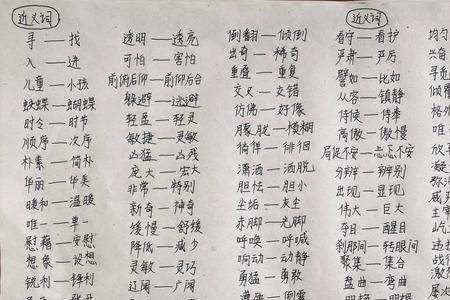 近义词
寻——找
入——进
儿童——小孩
蚨蝶——蝴蝶
时令——时节
顺序——次序
朴素——简朴
华丽——华美
暖和——温暖
唯一——单一
慰藉——安慰
想象——设想
锐利——锋利
透明——透亮
可怕——害怕
前俯后仰——前仰后合
躲避——逃避
轻盈——轻灵
敏捷——灵敏
凶猛——凶残
庞大——宏大
非常——特别
新奇——神奇
缓慢——舒缓
降低——减少
灵敏——灵巧
辽阔——广阔
倒翻——倾倒
出奇——稀奇
重叠——重复
交叉——交错
仿佛——好像
朦胧——模糊
徜徉——徘徊
潇洒——洒脱
胆怯——胆小
尘垢——灰尘
赤脚——光脚
呼唤——呼喊
响动——动静
勇猛——勇敢
近义词
看守——看护
严肃——严厉
譬如——比如
从容——镇静
侍候——侍奉
高傲——傲慢
局促不安——忐忑不安
分辨——辨别
出现——显现
伟大——巨大
夺目——醒目
刹那间——转眼间
聚集——集合
盘曲——弯曲